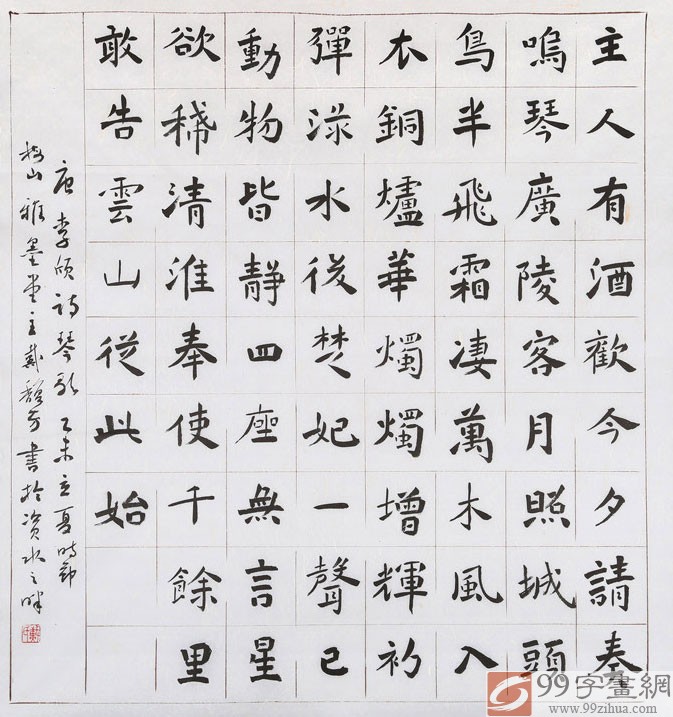 主人有酒歡今夕請奏
鳴琴廣陵客月照城頭
烏半飛霜凄萬木風入
衣銅爐華燭燭增輝初
彈淥水後楚妃一聲已
動物皆靜四座無言星
欲稀清淮奉使千餘里
敢告雲山從此始
唐李頎詩琴歌 乙未立夏時節
梅山雅墨堂主戴書於資水之畔
99字畫網
www.99zihua.com